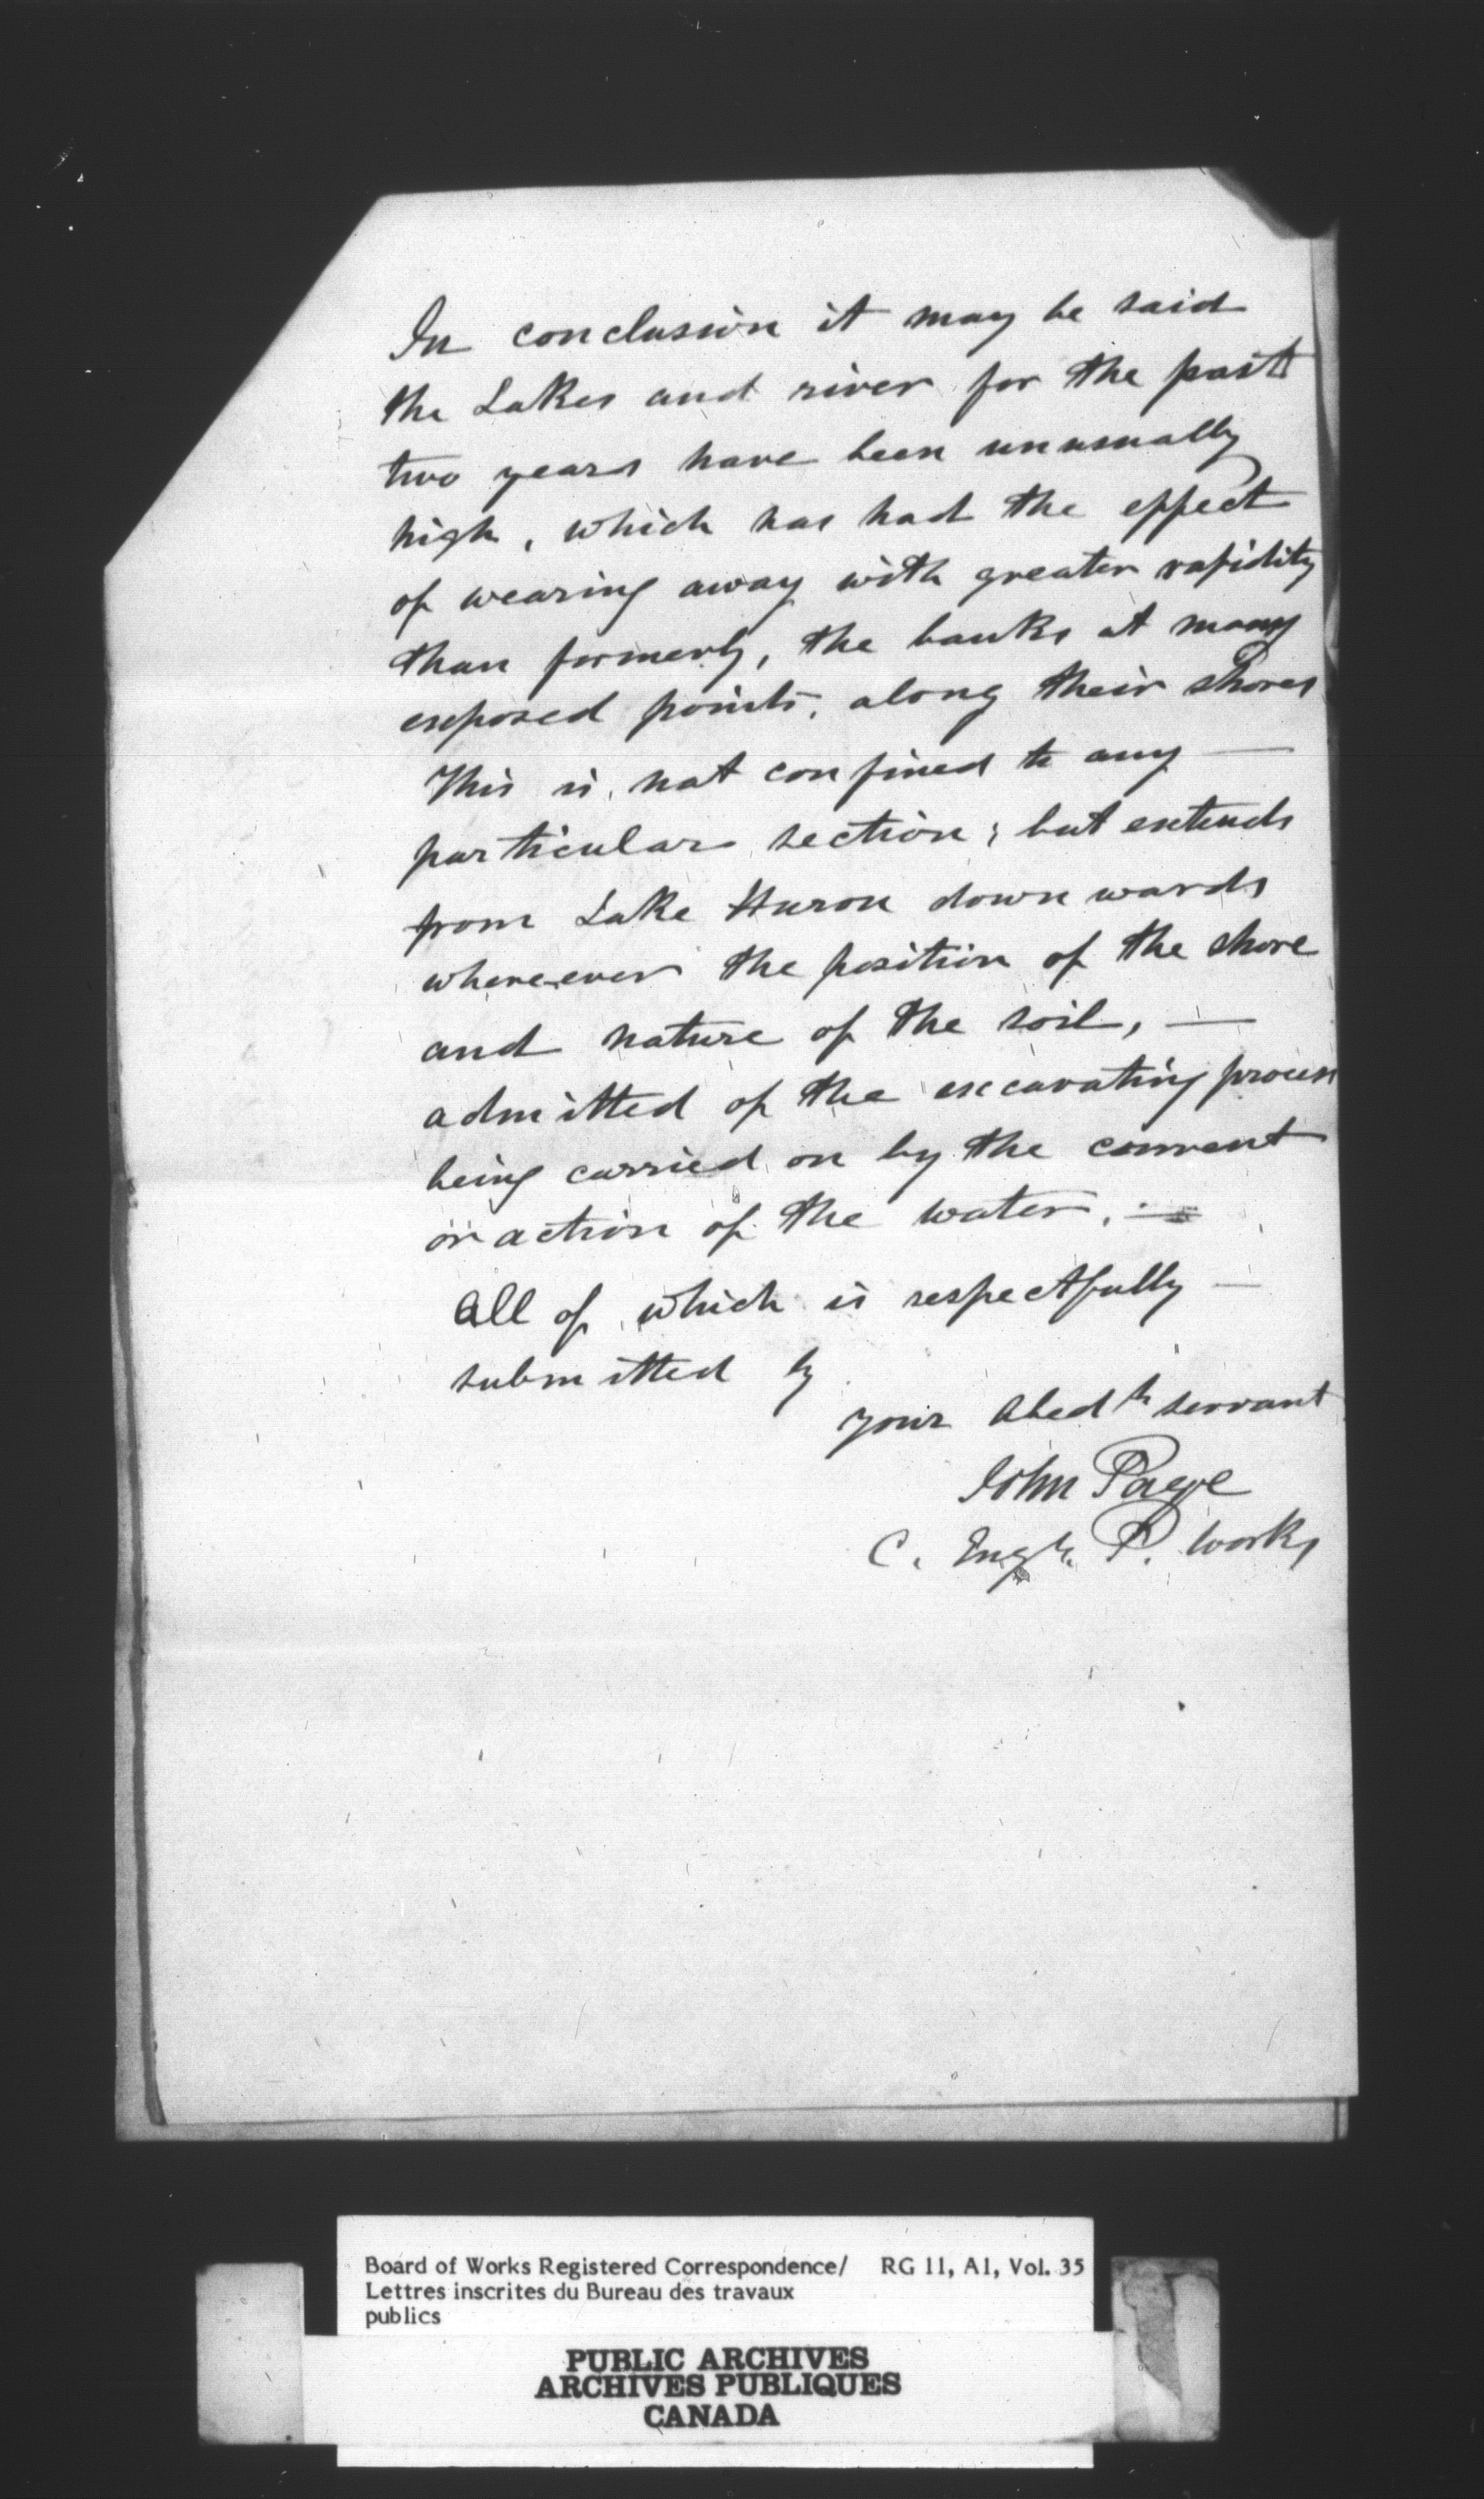 In conclusion it may be said
the Lakes and river for the past
two years have been unusually
high, which has had the effect
of wearing away with greater rapidity
than formerly, the banks at many
exposed points, along their shores
This is not confined to any —
particular section; but extends
from Lake Huron downwards
where-ever the position of the shore
and nature of the soil, —
admitted of the excavating process
being carried on by the current
or action of the water. —
All of which is respectfully —
submitted by
your Obedt servant
John Page
C. Engr. P. Works
Board of Works Registered Correspondence/ RG 11, A1, Vol. 35
Lettres inscrites du Bureau des travaux
publics
PUBLIC ARCHIVES
ARCHIVES PUBLIQUES
CANADA